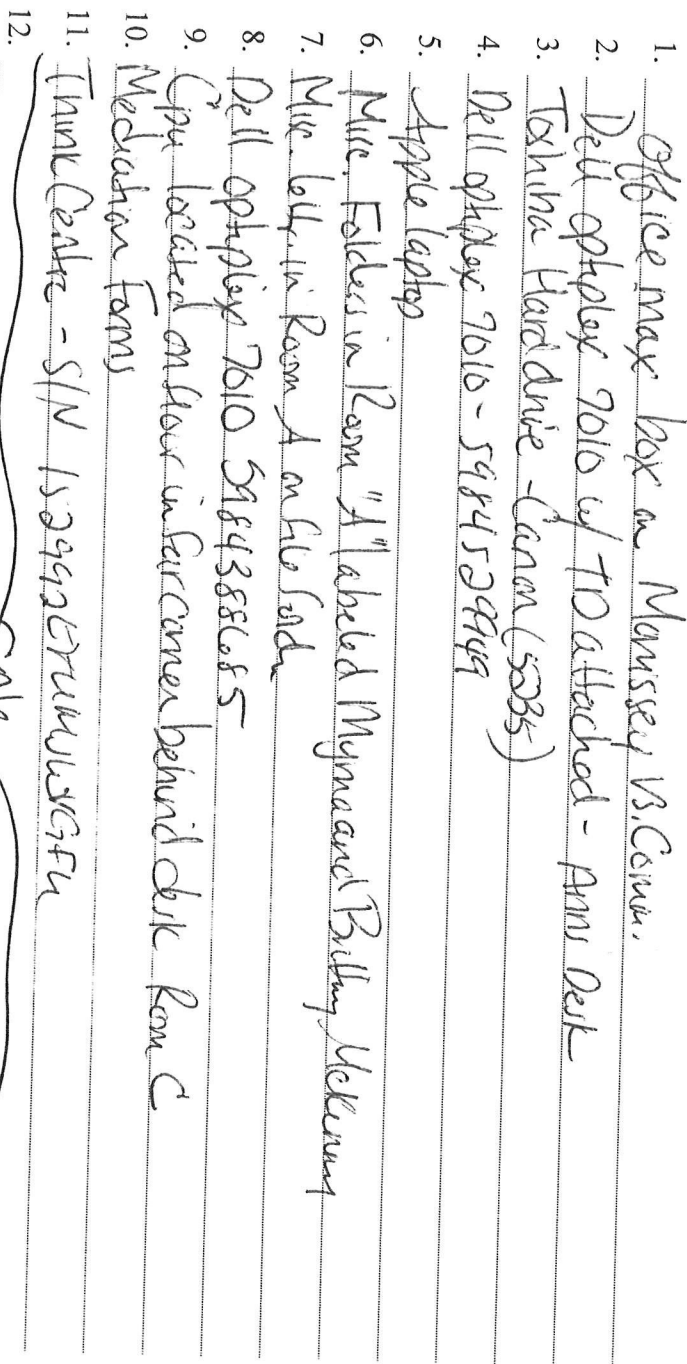 1. Office max box on Morrissey vs. Comm.
2. Dell optplex 7010 w/ TD attached - Anns Desk
3. Toshiba Hard drive - Canon (5235)
4. Dell optplex 7010 - 5984529949
5. Apple laptop
6. Misc. Folders in Room "A" labeled Myrna and Brittany McKinney
7. Misc. in Room A on file
8. Dell optiplex 7010 59843886685
9. Cpu located on floor in far corner behind desk Room C
10. Mediation Forms
11. Think Centre - S/N
12.